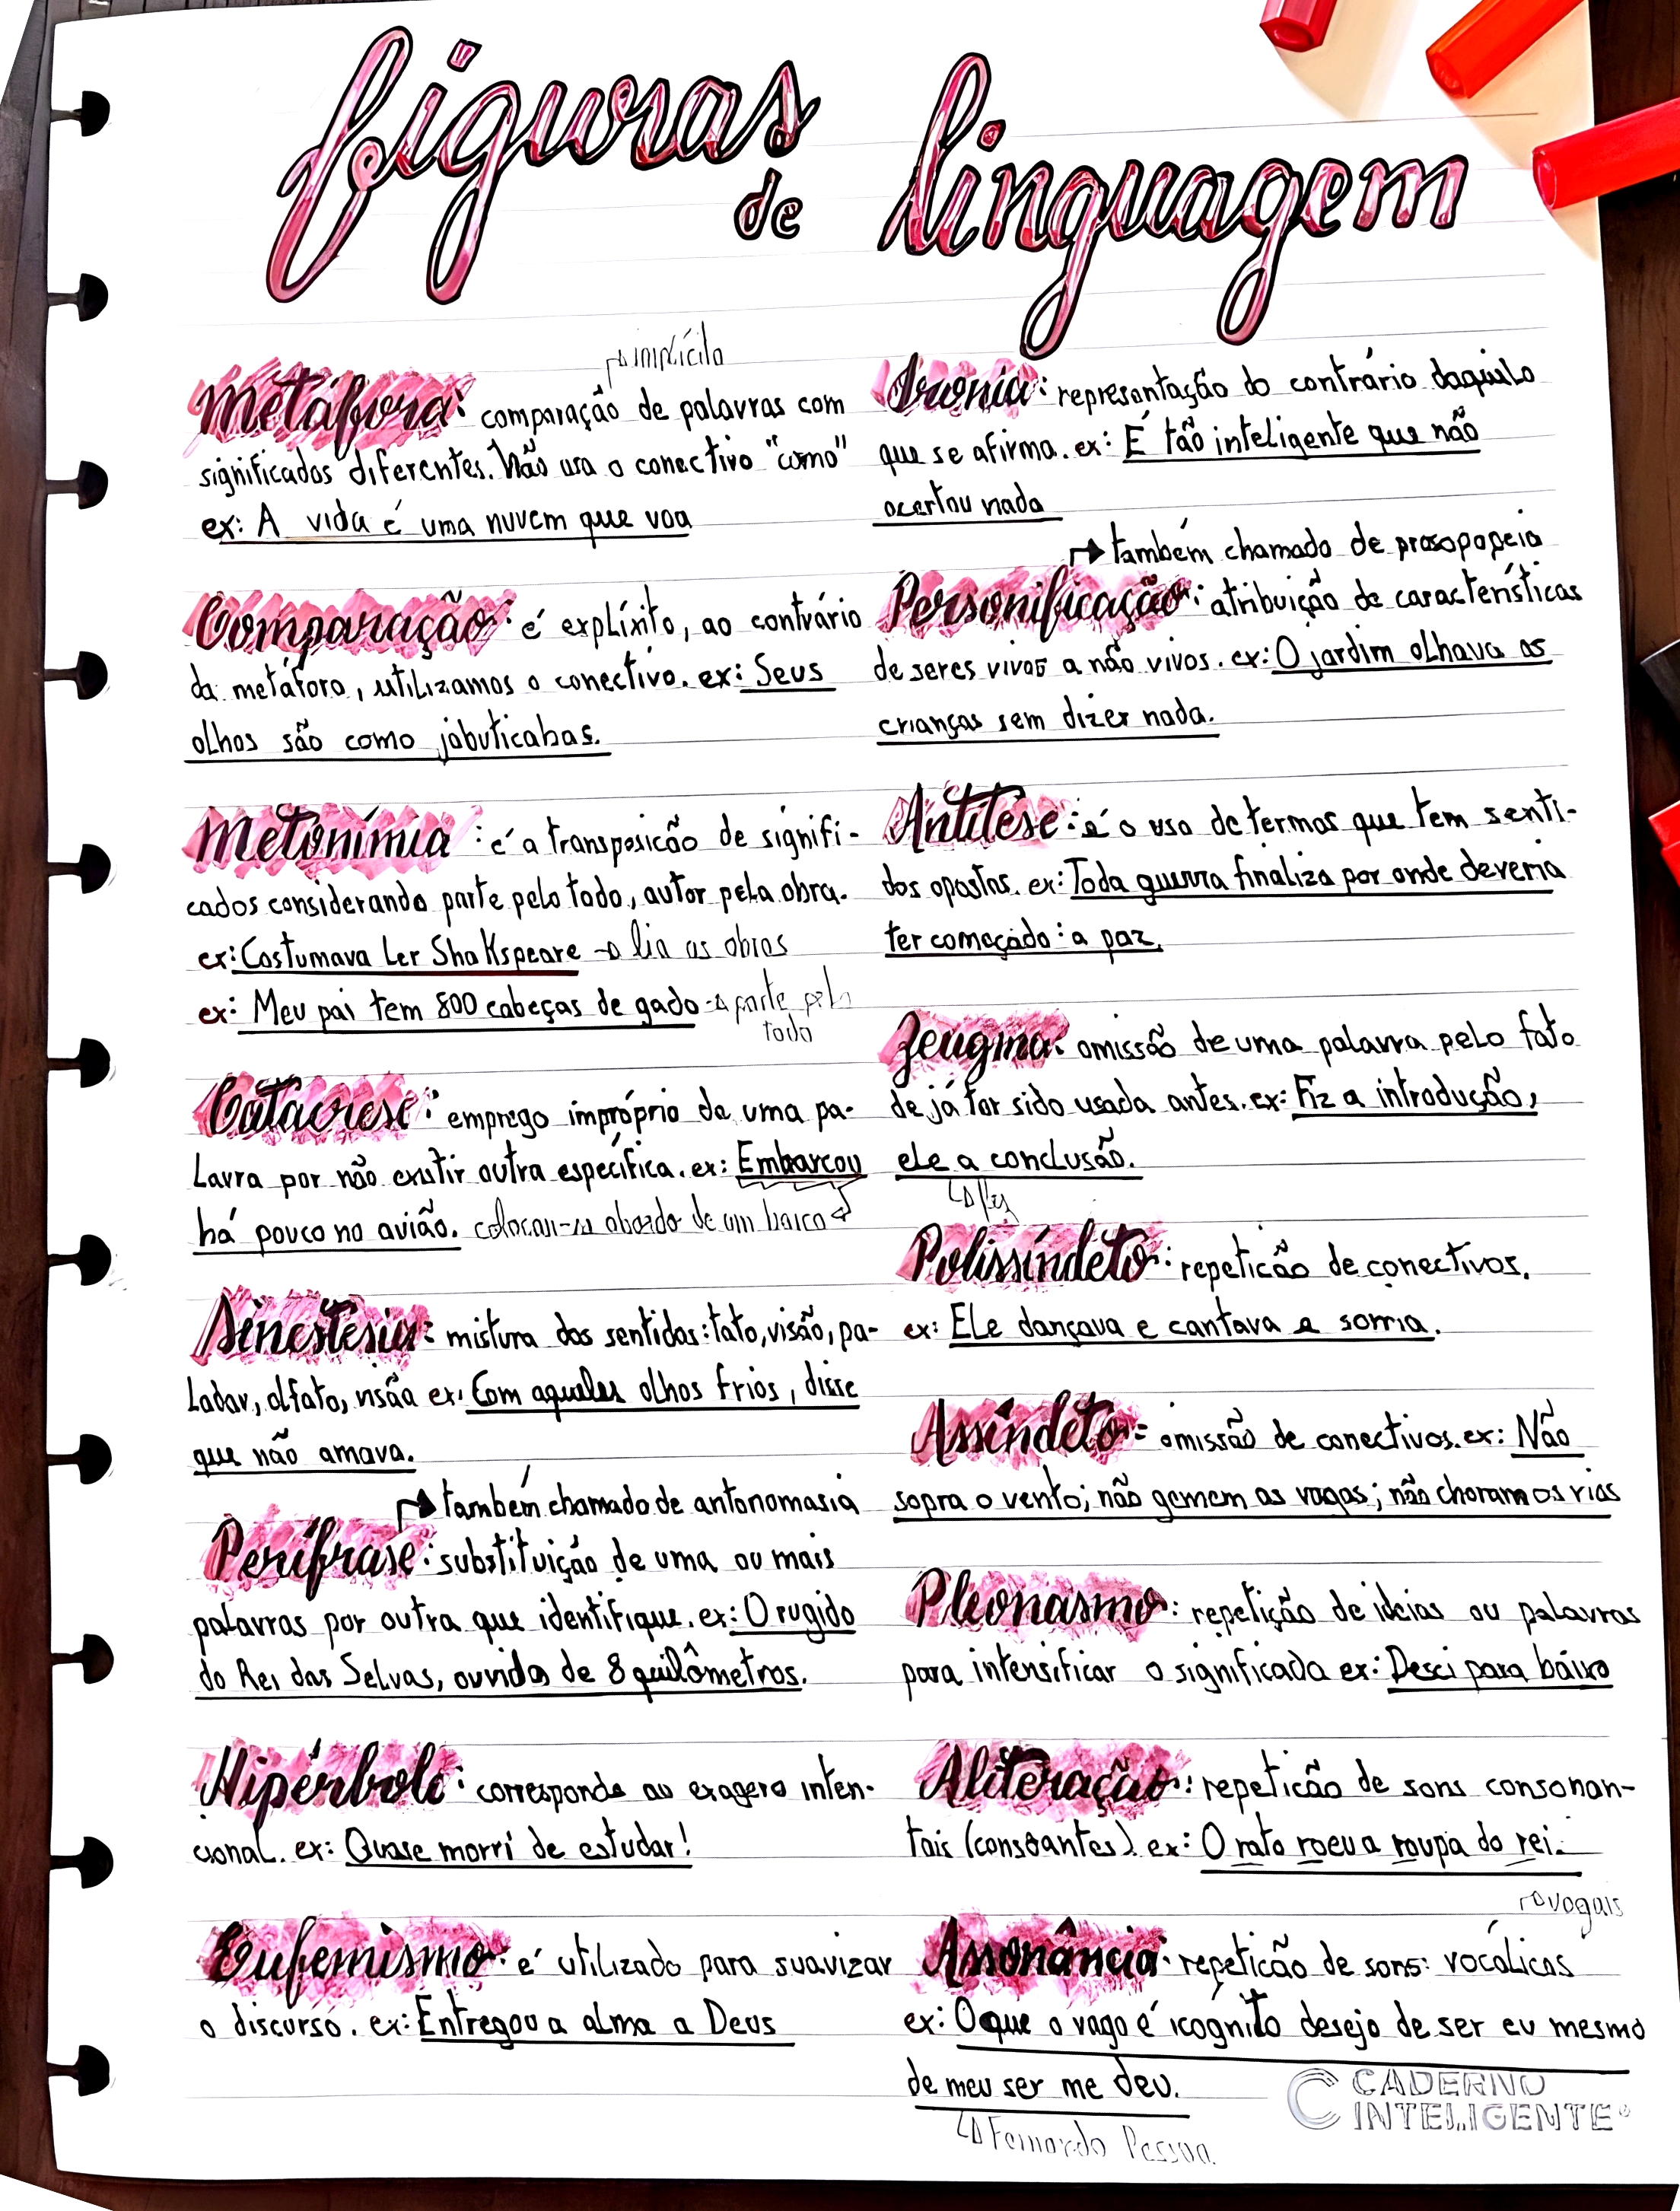 figuras de linguagem
→ implícito
Metáfora: comparação de palavras com
significados diferentes. Não usa o conectivo "como"
ex: A vida é uma nuvem que voa
Comparação: é explíxito, ao contrário
da metáfora, utilizamos o conectivo. ex: Seus
olhos são como jabuticabas.
Metonímia: é a transposicão de signifi-
cados considerando parte pelo todo, autor pela obra.
ex: Costumava Ler Shakspeare → lia as obras
ex: Meu pai tem 800 cabeças de gado → parte pelo
todo
Catacrese: emprego impróprio de uma pa-
Lavra por não existir outra específica. ex: Embarcou
há pouco no avião. colocou-se abordo de um barco
Sinestesia: mistura dos sentidos: tato, visão, pa-
Ladar, olfato, visão ex: Com aqueles olhos frios, disse
que não amava.
→ também chamado de antonomasia
Perífrase: substituição de uma ou mais
palavras por outra que identifique. ex: O rugido
do Rei das Selvas, ouvido de 8 quilômetros.
Hipérbole: corresponde ao exagero inten-
cional. ex: Quase morri de estudar!
Eufemismo: é utilizado para suavizar
o discurso. ex: Entregou a alma a Deus
Ironia: representação do contrário daquilo
que se afirma. ex: É tão inteligente que não
acertou nada
→ também chamado de prosopopeia
Personificação: atribuição de características
de seres vivos a não vivos. ex: O jardim olhava as
crianças sem dizer nada.
Antítese: é o uso de termos que tem senti-
dos opostos. ex: Toda guerra finaliza por onde deveria
ter começado: a paz.
Zeugma: omissão de uma palavra pelo fato
de já ter sido usada antes. ex: Fiz a introdução,
ele a conclusão.
→ fez
Polissíndeto: repeticão de conectivos.
ex: Ele dançava e cantava e sorria.
Assíndeto: omissão de conectivos. ex: Não
sopra o vento; não gemem as vagas; não choram os rios
Pleonasmo: repetição de ideias ou palavras
para intensificar o significado ex: Desci para baixo
Aliteração: repeticão de sons consonan-
tais (consoantes). ex: O rato roeu a roupa do rei.
→ vogais
Assonância: repeticão de sons: vocálicos
ex: O que o vago é icógnito desejo de ser eu mesmo
de meu ser me deu.
→ Fernando Pessoa
CADERNO
INTELIGENTE®